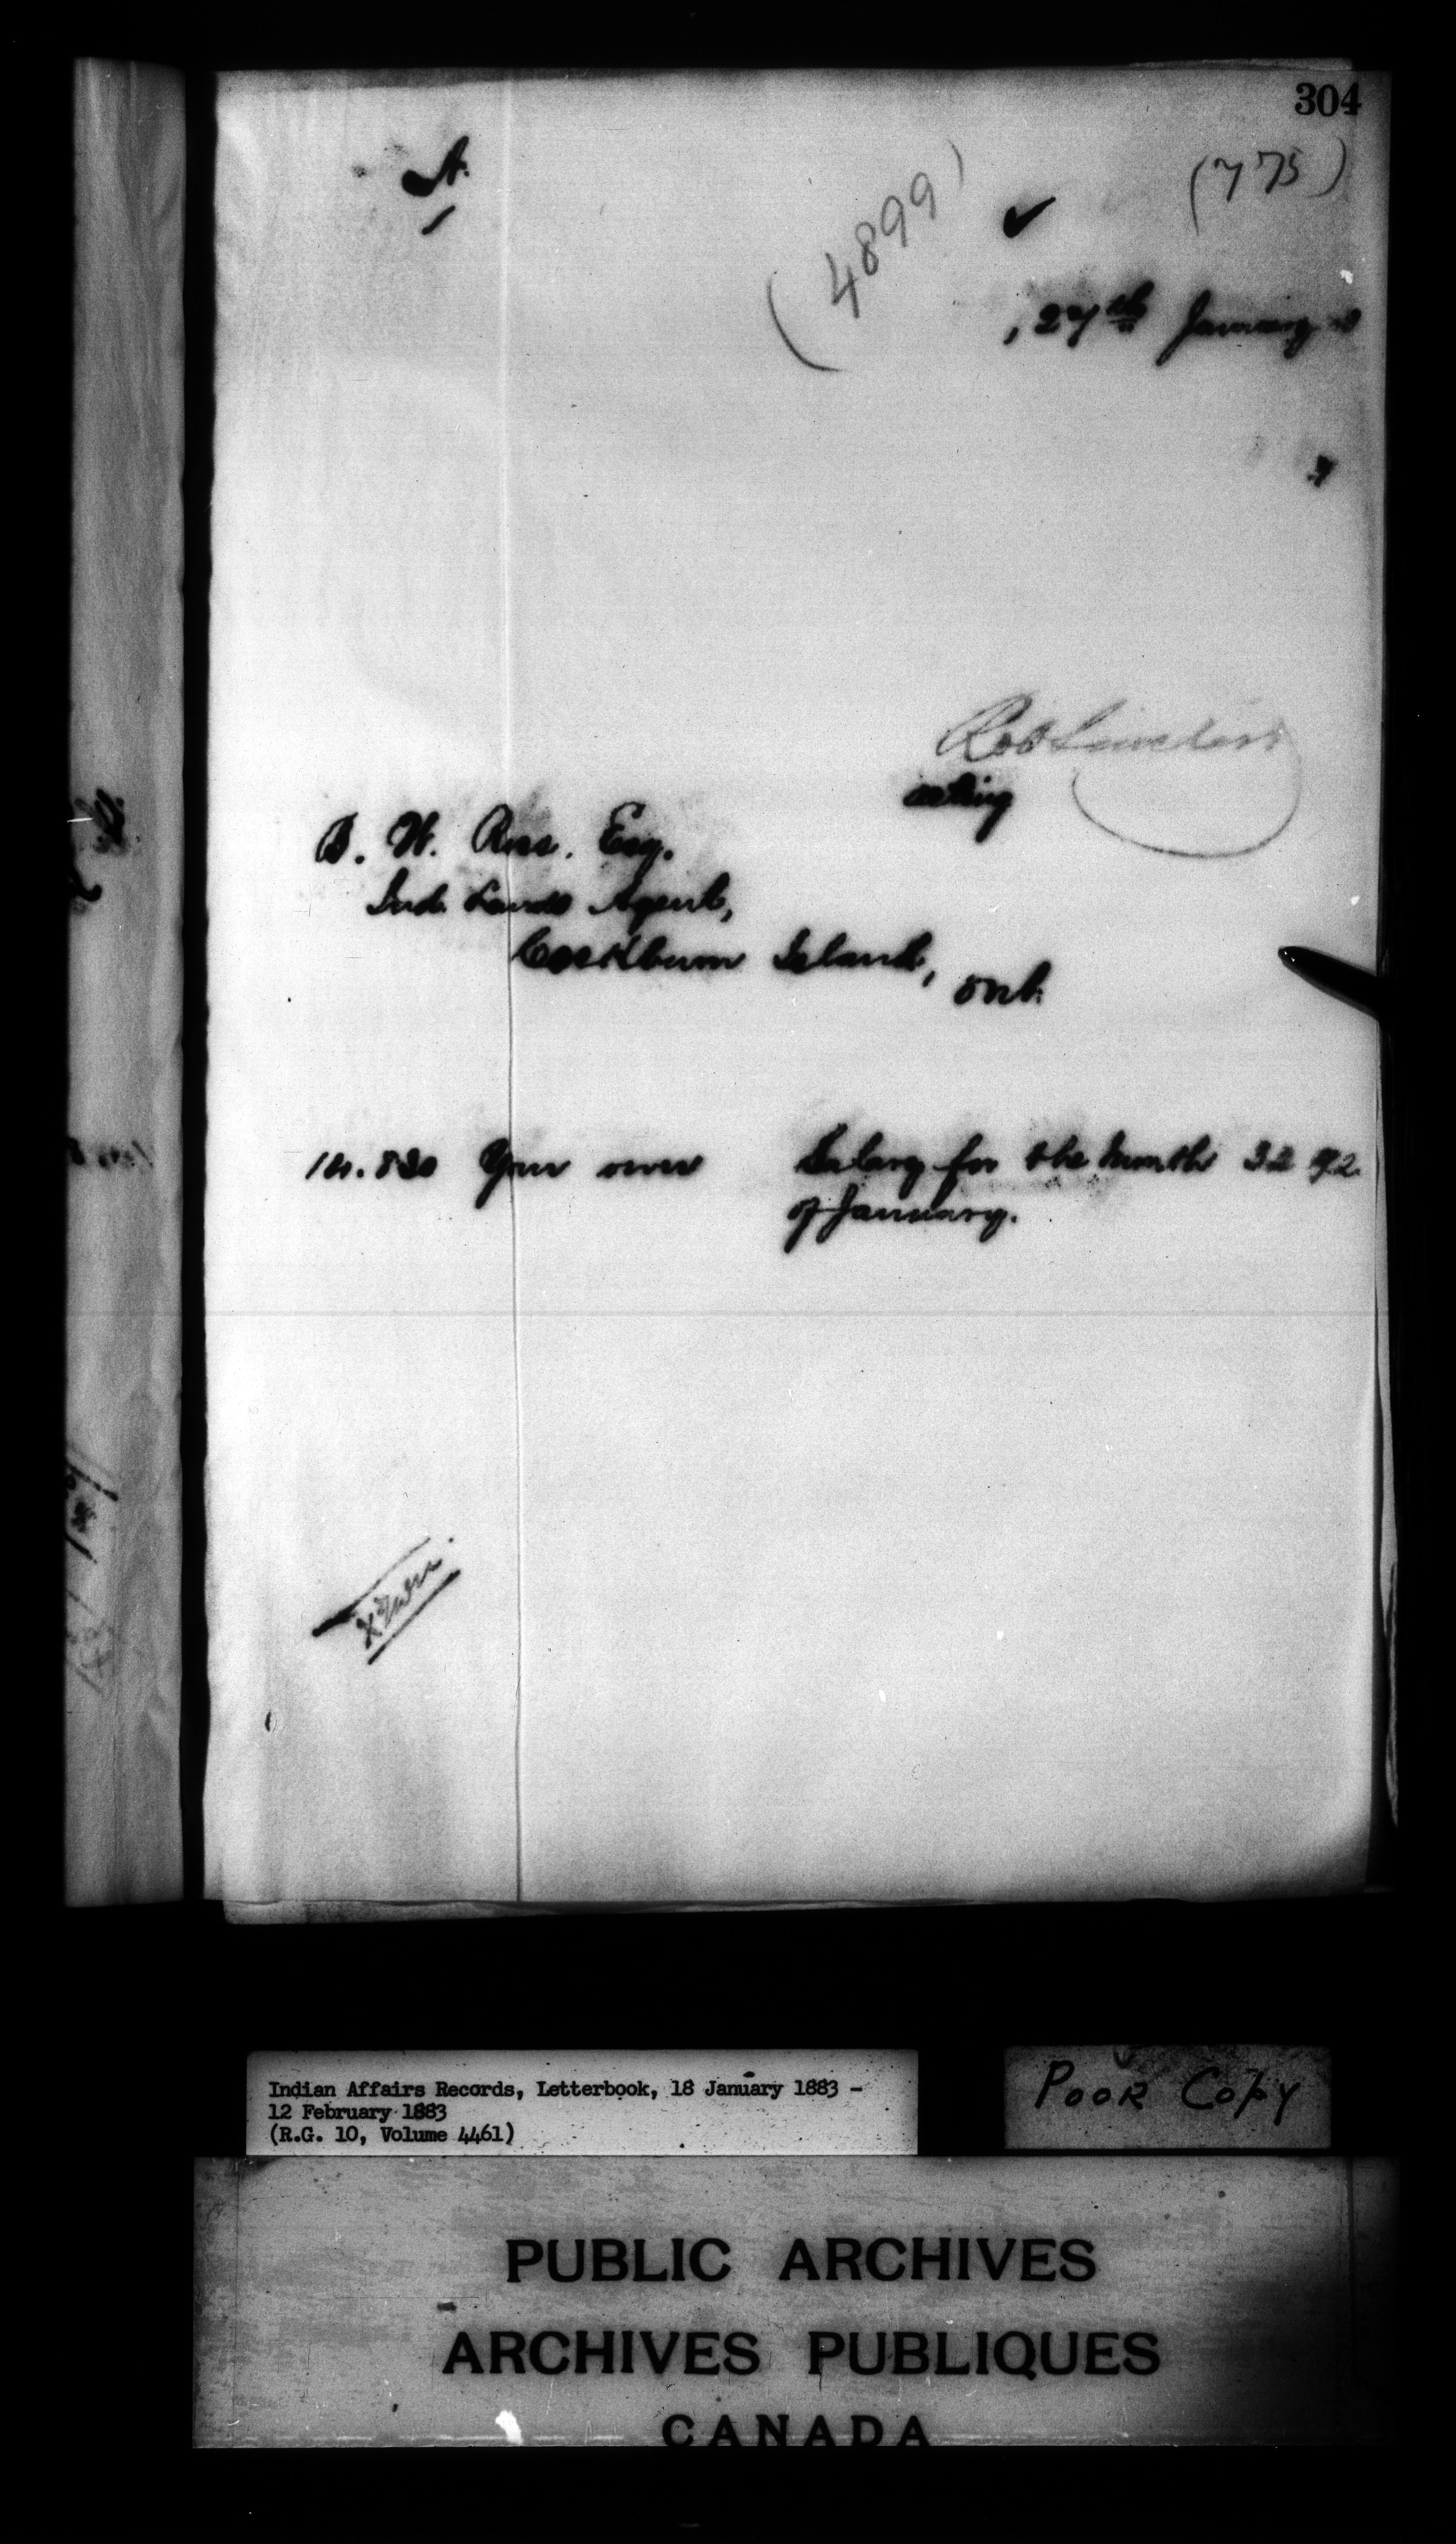 304
A.
(4899)
(775)
, 27th January
acting
B. W. Ross. Esq.
Ind. Lands Agent,
Cockburn Island,
Ont.
14.830 Your own Salary for the Month 32 92
of January.
Indian Affairs Records, Letterbook, 18 January 1883 -
12 February 1883
(R.G. 10, Volume 4461)
POOR COPY
PUBLIC ARCHIVES
ARCHIVES PUBLIQUES
CANADA